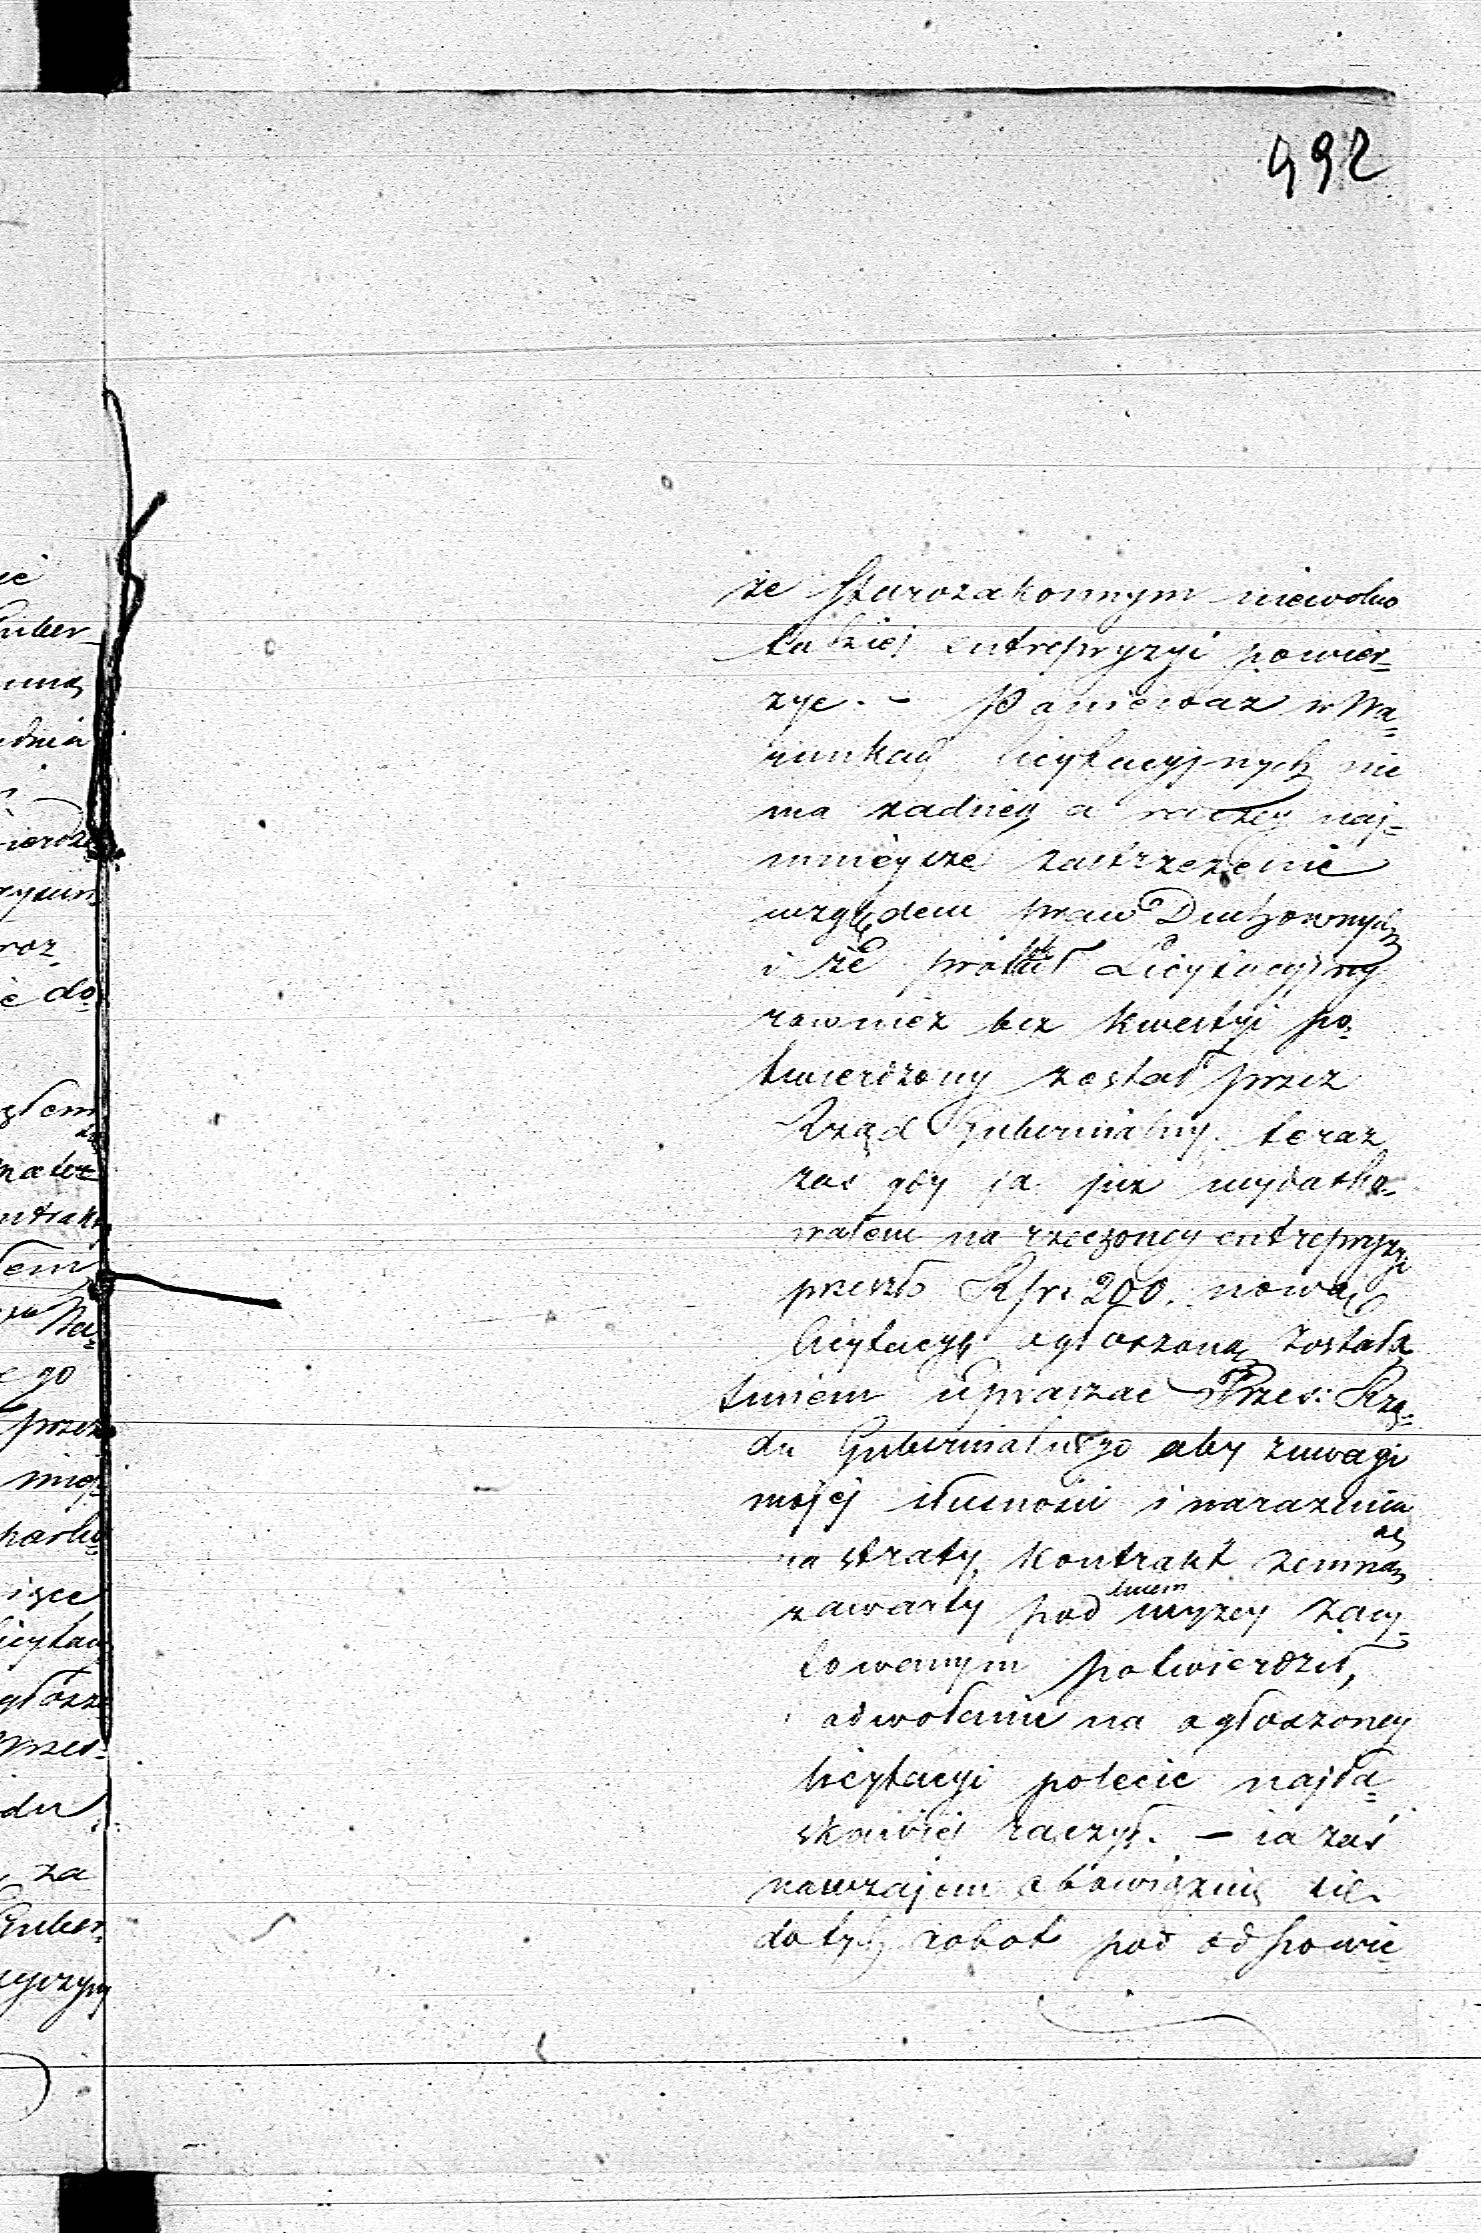 492
że Starozakonnym niewolno
takiej entrepryzyi powier=
zyc. – Ponieważ w Wa=
runkach licytacyjnych nie
ma żadney a raczey naj=
mnieysze zastrzezenie
względem praw Duchownych
i że protokół Licytacyjny
rownież bez kwestyi po=
twierdzony został przez
Rząd Gubernialny. teraz
zas gdy ja już wydatko=
wałem na rzeczoney entrepryzyi
przeszło Rsr. 200. nowa
licytacyę ogłoszoną została
umiem upraszac Prześ: Rzą=
du Gubernialnego aby zuwagi
mojej słusności i narazenia
na straty, kontrakt zemną
zawarty pod dniem wyzey zacy=
towanym potwierdził,
i odwołanie na ogłoszoney
licytacyi polecic najła=
skawiej raczył. – ia zaś
nawzajem obowiązuię się
do tych robot pod odpowie=
ie
Guber=
umą
dnia
go
przez
iące
icytac
ogłosze
du
za
Guber=